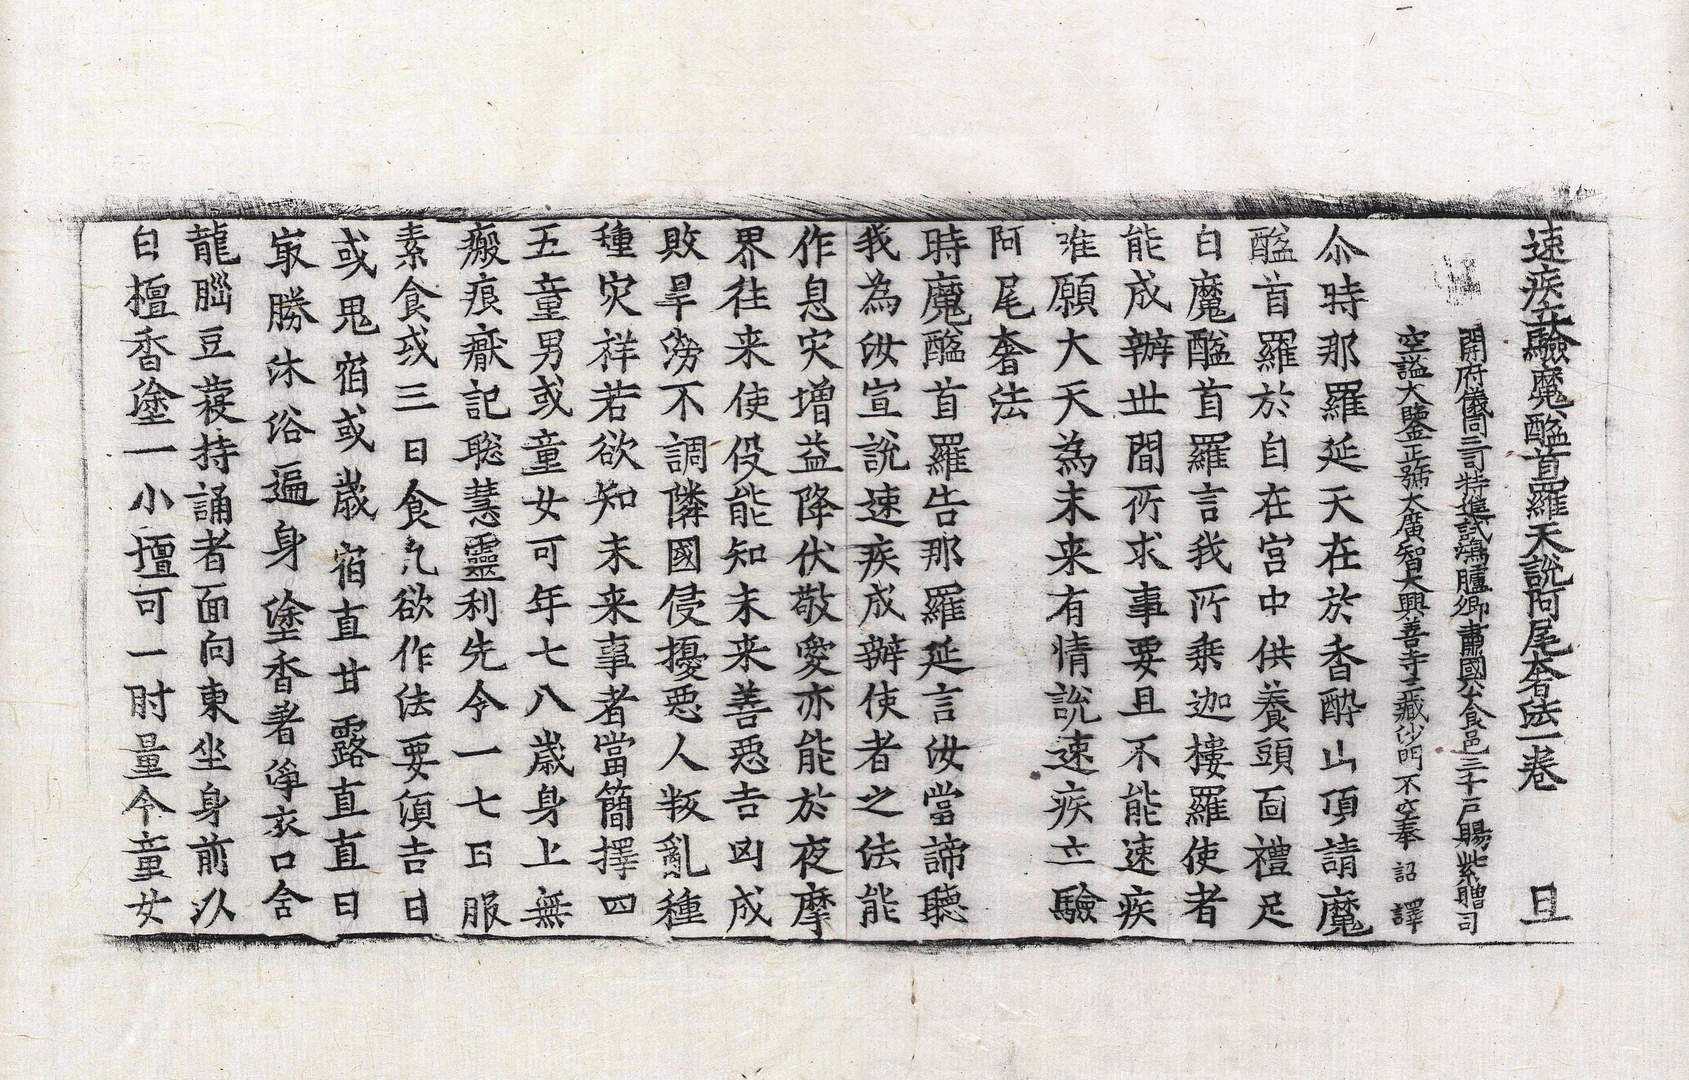 速疾立驗魔醯首羅天說阿尾奢法一卷 且
開府儀同三司特進試鴻臚卿肅國公食邑三千戶賜紫贈司
空謚大鑒正號大廣智大興善寺三藏沙門不空奉 詔 譯
尒時那羅延天在於香酔山頂請魔
醯首羅於自在宮中供養頭靣禮足
白魔醯首羅言我所乘迦樓羅使者
能成辦世間所求事要且不能速疾
唯願大天為末来有情說速疾立驗
阿尾奢法
時魔醯首羅告那羅延言汝當諦聽
我為汝宣說速疾成辦使者之法能
作息灾增益降伏敬愛亦能於夜摩
界往来使伇能知未来善惡吉凶成
敗旱澇不調隣國侵擾惡人叛亂種
種灾祥若欲知未来事者當簡擇四
五童男或童女可年七八歲身上無
瘢痕黶記聡慧靈利先令一七日服
素食或三日食凢欲作法要須吉日
或鬼宿或歲宿直甘露直直日
冣勝沐浴遍身塗香著淨衣口含
龍腦豆蔻持誦者面向東坐身前以
白檀香塗一小壇可一肘量令童女